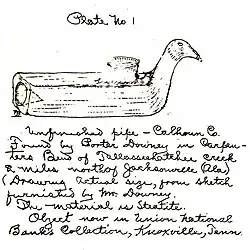 Plate No 1
Unfinished pipe - Calhoun Co.
Found by Porter Downey in Carpen-
ters Bend of Tallasseehatchee Creek
miles north of Jacksonville (Ala)
(Drawing actual size, from sketch
furnished by Mr. Downey.
The material is Steatite.
Object now in Union National
Banks Collection, Knoxville, Tenn